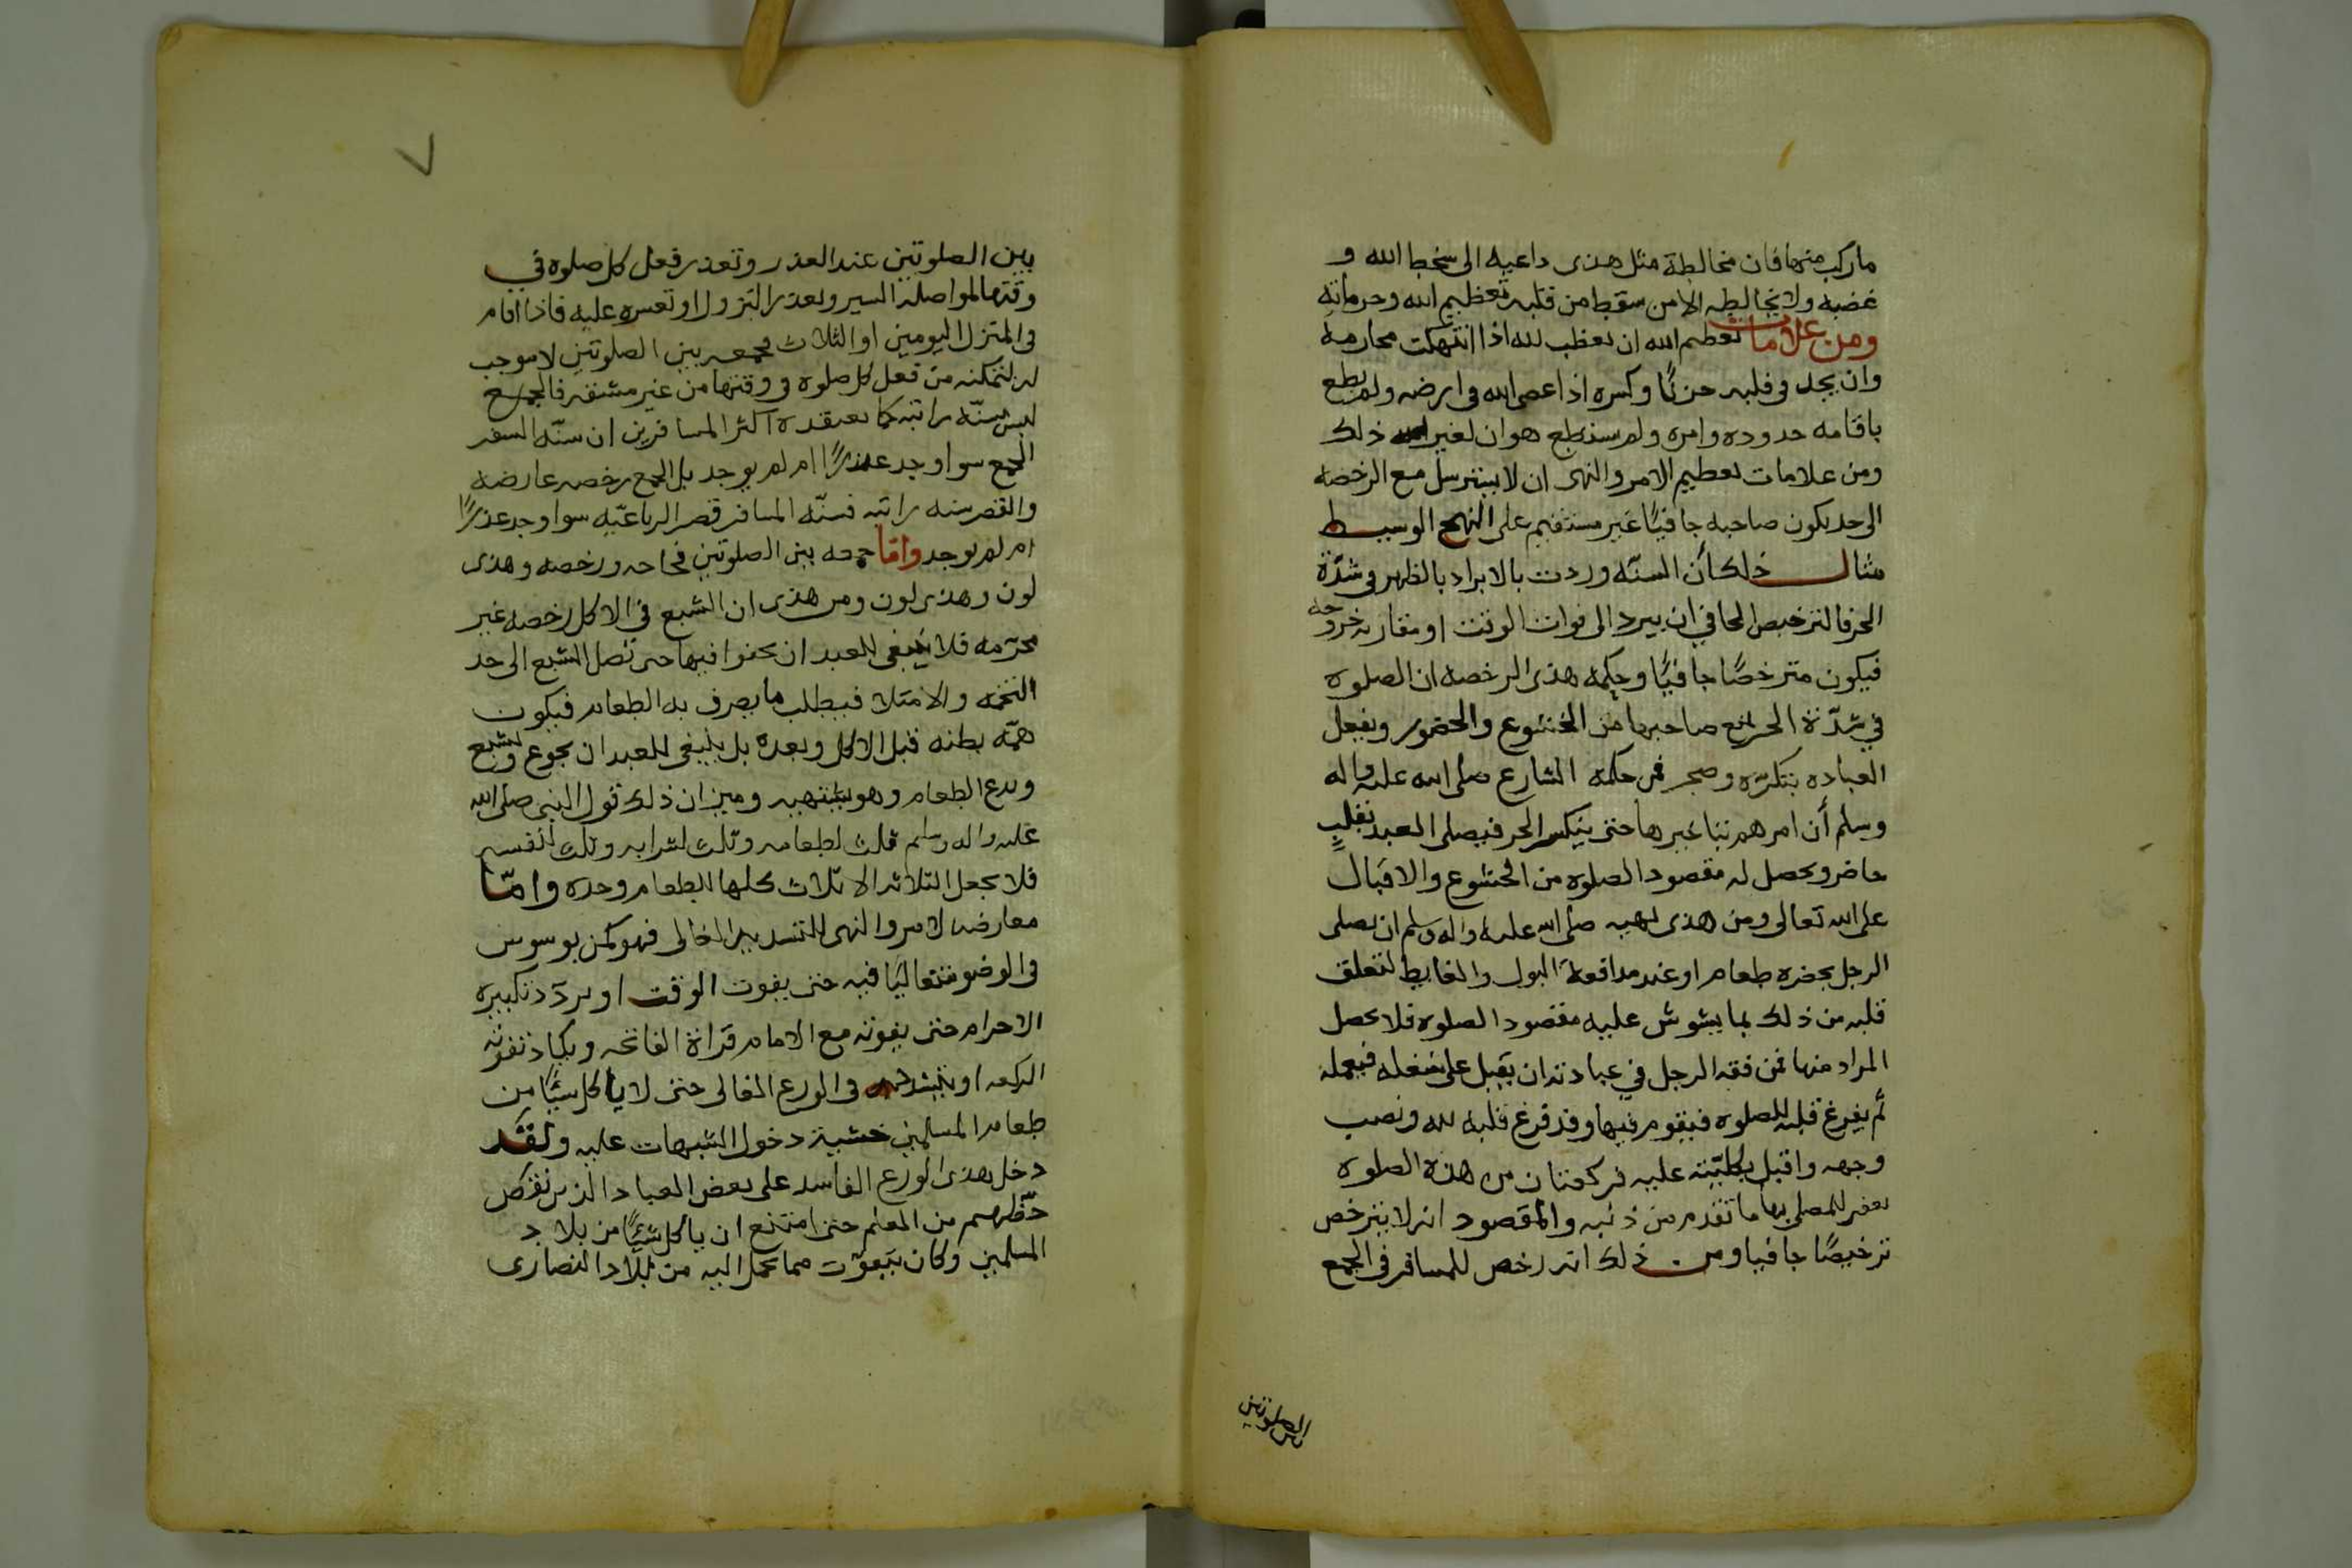 ماركب منها فان مخالطة مثل هذى داعيه الى سخط الله و
غضبه ولا يخالطه الا من سقط من قلبه تعظيم الله وحرماته
ومن علامات تعظيم الله ان يغظب لله اذا انتهكت محارمه
وان يجد في قلبه حزنًا وكسره اذا عصى الله في ارضه ولم يطع
باقامه حدوده وامره ولم يستطع هو ان لغير ذلك
ومن علامات تعظيم الامر والنهى ان لا يسترسل مع الرخصه
الى حد يكون صاحبه جافيًا غير مستقيم على النهج الوسيط
مثال ذلك أن السنّه وردت بالابراد بالظهر في شدّة
الحر فالترخيص الجافي ان يبرد الى فوات الوقت او مقاربه خروجه
فيكون مترخصًا جافيًا وحكمه هذى الرخصه ان الصلوه
في شدّة الحر تمنع صاحبها من الخشوع والحضور ويفعل
العباده بتكرّه وضجر فمن حكمه الشارع صلى الله عليه واله
وسلم أن امرهم بتاخيرها حتى ينكسر الحر فيصلى العبد بقلبٍ
حاضر ويحصل له مقصود الصلوه من الخشوع والاقبال
على الله تعالى ومن هذى نهيه صلى الله عليه واله وسلم ان يصلى
الرجل بحضره طعام او عند مدافعة البول والغايط لتعلق
قلبه من ذلك بما يشوش عليه مقصود الصلوه فلا يحصل
المراد منها فمن فقه الرجل في عبادته ان يقبل على شغله فيعمله
ثم يفرغ قلبه للصلوه فيقوم فيها وقد فرغ قلبه لله ونصب
وجهه واقبل بكليّته عليه فركعتان من هذه الصلوه
يغفر للمصلى بها ما تقدم من ذنبه والمقصود انه لا يترخص
ترخيصًا جافيا ومن ذلك انه رخص للمسافر في الجمع
بين الصلوتين
٧
بين الصلوتين عند العذر وتعذر فعل كل صلوه في
وقتها لمواصلة السير وتعذر النزول او تعسره عليه فاذا اقام
في المنزل اليومين او الثلاث فجمعه بين الصلوتين لا موجب
له لتمكنه من فعل كل صلوه في وقتها من غير مشقه فالجمع
ليس سنّه راتبه كما يعتقده اكثر المسافرين ان سنّه السفر
الجمع سوا وجد عذرًا ام لم يوجد بل الجمع رخصه عارضه
والقصر سنه راتبه فسنّه المسافر قصر الرباعيّه سوا وجد عذرًا
ام لم يوجد واما جمعه بين الصلوتين فحاجه ورخصه وهذى
لون وهذى لون ومن هذى ان الشبع في الاكل رخصه غير
محرّمه فلا ينبغى للعبد ان يجفوا فيها حتى تصل الشبع الى حد
التخمه والامتلا فيطلب ما يصرف به الطعام فيكون
همّه بطنه قبل الاكل وبعده بل ينبغى للعبد ان يجوع ويشبع
ويدع الطعام وهو يشتهيه وميزان ذلك قول النبى صلى الله
عليه واله وسلم ثلث لطعامه وثلث لشرابه وثلث لنفسه
فلا يجعل الثلاثه الاثلاث كلها للطعام وحده وامّا
معارضه الامر والنهى للتشديد الغالى فهو كمن يوسوس
في الوضو متغاليًا فيه حتى يفوت الوقت او يردّد تكبيره
الاحرام حتى يفوته مع الامام قراة الفاتحه ويكاد تفوته
الركعه او يتشدد في الورع الغالى حتى لا ياكل شيًا من
طعام المسلمين خشية دخول الشبهات عليه ولقد
دخل هذى الورع الفاسد على بعض العباد الذين نقص
حظهم من العلم حتى امتنع ان ياكل شيئًا من بلاد
المسلمين وكان يتقوّت مما يحمل اليه من بلاد النصارى